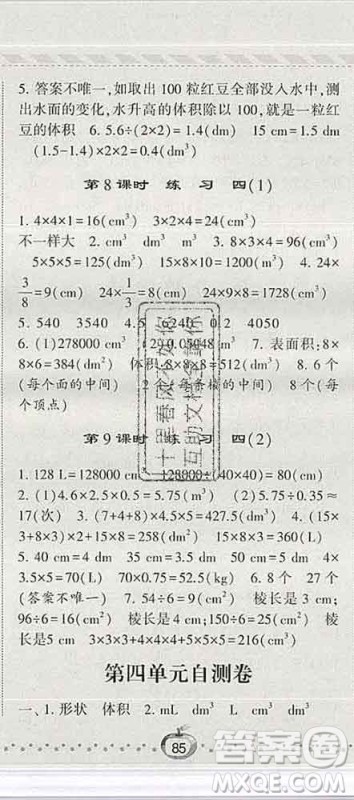 5. 答案不唯一,如取出 100 粒红豆全部没入水中,测
出水面的变化,水升高的体积除以 100,就是一粒红
豆的体积 6. 5.6÷(2×2)=1.4(dm) 15 cm=1.5 dm
(1.5-1.4)×2×2=0.4(dm³)
第 8 课时 练 习 四(1)
1. 4×4×1=16(cm³) 3×2×4=24(cm³)
不一样大 2. dm³ dm³ m³ 3. 8×3×4=96(cm³)
5×5×5=125(dm³) 15×8×10=1200(m³) 4. 24×
3/8=9(cm) 24×1/3=8(cm) 24×9×8=1728(cm³)
5. 540 3540 240 0.2 4050
6. (1)278000 cm³ (2)0.05048 m³ 7. 表面积:8×
8×6=384(dm²) 体积:8×8×8=512(dm³) 8. 6 个
(每个面的中间) 12 个(每条棱的中间) 8 个(每
个顶点)
第 9 课时 练 习 四(2)
1. 128 L=128000 cm³ 128000÷(40×40)=80(cm)
2. (1)4.6×2.5×0.5=5.75(m³) (2)5.75÷0.35≈
17(次) 3. (7+4+8)×45×0.5=427.5(dm³) 4. (15×
8+15×3+8×3)×2=378(cm²) 15×8×3=360(cm³)
5. 40 cm=4 dm 50 cm=5 dm 35 cm=3.5 dm 4×
3.5×5=70(L) 6. 2 个 8 个 9 个 27 个
(答案不唯一) 7. 54÷6=9(cm²) 棱长是 3 cm;
96÷6=16(cm²) 棱长是 4 cm;150÷6=25(cm²) 棱
长是 5 cm 3×3×3+4×4×4+5×5×5=216(cm³)
十里春风不如你
互助文档我请你
第四单元自测卷
一、1. 形状 体积 2. mL dm³ L cm³ dm³
85
答案圈
MXQE.COM